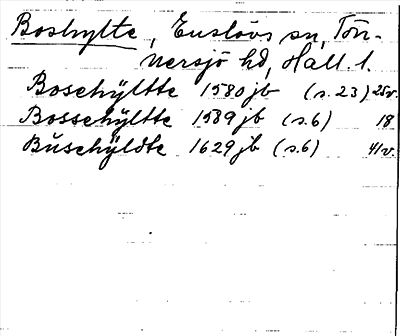 Boshylte, Enslövs sn, Tön-
nersjö hd, Hall. l.
Bosehÿltte 1580 jb (s. 23) 25v.
Bossehÿltte 1589 jb (s. 6) 18
Bŭsehÿldte 1629 jb (s. 6) 41v.